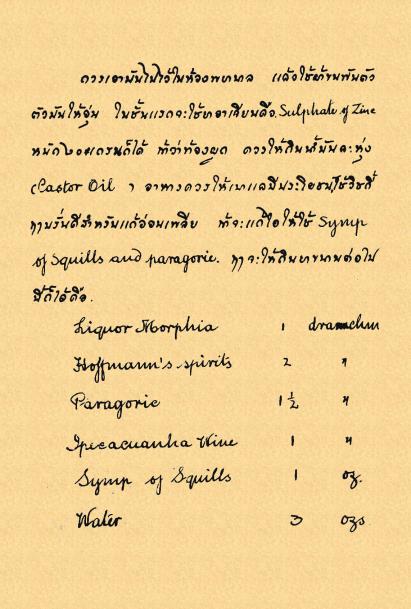 ควรเอามันไปไว้ในห้องพยาบาล แล้วใช้ผ้าขนพันตัว
ตัวมันให้อุ่น ในชั้นแรกจะใช้ยาอาเจียนคือ Sulphate of Zinc
หนัก ๒๐ เกรนก็ได้ ถ้าว่าท้องผูก ควรให้กินน้ำมันละหุ่ง
(Castor Oil) อาหารควรให้
สำหรับแก้อ่อนเพลีย ถ้าจะแก้ไอให้ใช้ Symp
of Squills and paragorie. ถ้าจะให้กินยาขนานต่อไป
นี้ก็ได้คือ.
Liquor Morphia 1
Hoffmann's spirits 2 "
Paragorie 1 ½ "
Ipecacuanha Wine 1 "
Symp of Squills 1 oz.
Water 3 ozs